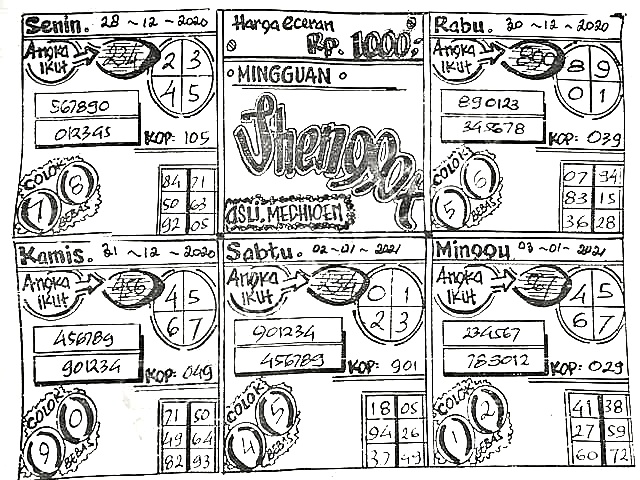 Senin. 28 ~ 12 ~ 2020
Angka Ikut
234
2 3
4 5
567890
012345
KOP: 105
COLOK BEBAS
7 8
84 71
50 63
92 05
Harga eceran
Rp. 1000;
• MINGGUAN •
ASLI. MECHIOEN
Rabu. 30 ~ 12 ~ 2020
Angka Ikut
890
8 9
0 1
890123
345678
KOP: 039
COLOK BEBAS
5 6
07 94
83 15
36 28
Kamis. 31 ~ 12 ~ 2020
Angka Ikut
456
4 5
6 7
456789
901234
KOP: 049
COLOK BEBAS
9 0
71 50
49 64
82 93
Sabtu. 02 ~ 01 ~ 2021
Angka Ikut
234
0 1
2 3
901234
456789
KOP: 901
COLOK BEBAS
4 5
18 05
94 26
37 49
Minggu 03 ~ 01 ~ 2021
Angka Ikut
967
4 5
6 7
234567
789012
KOP: 029
COLOK BEBAS
1 2
41 38
27 59
60 72